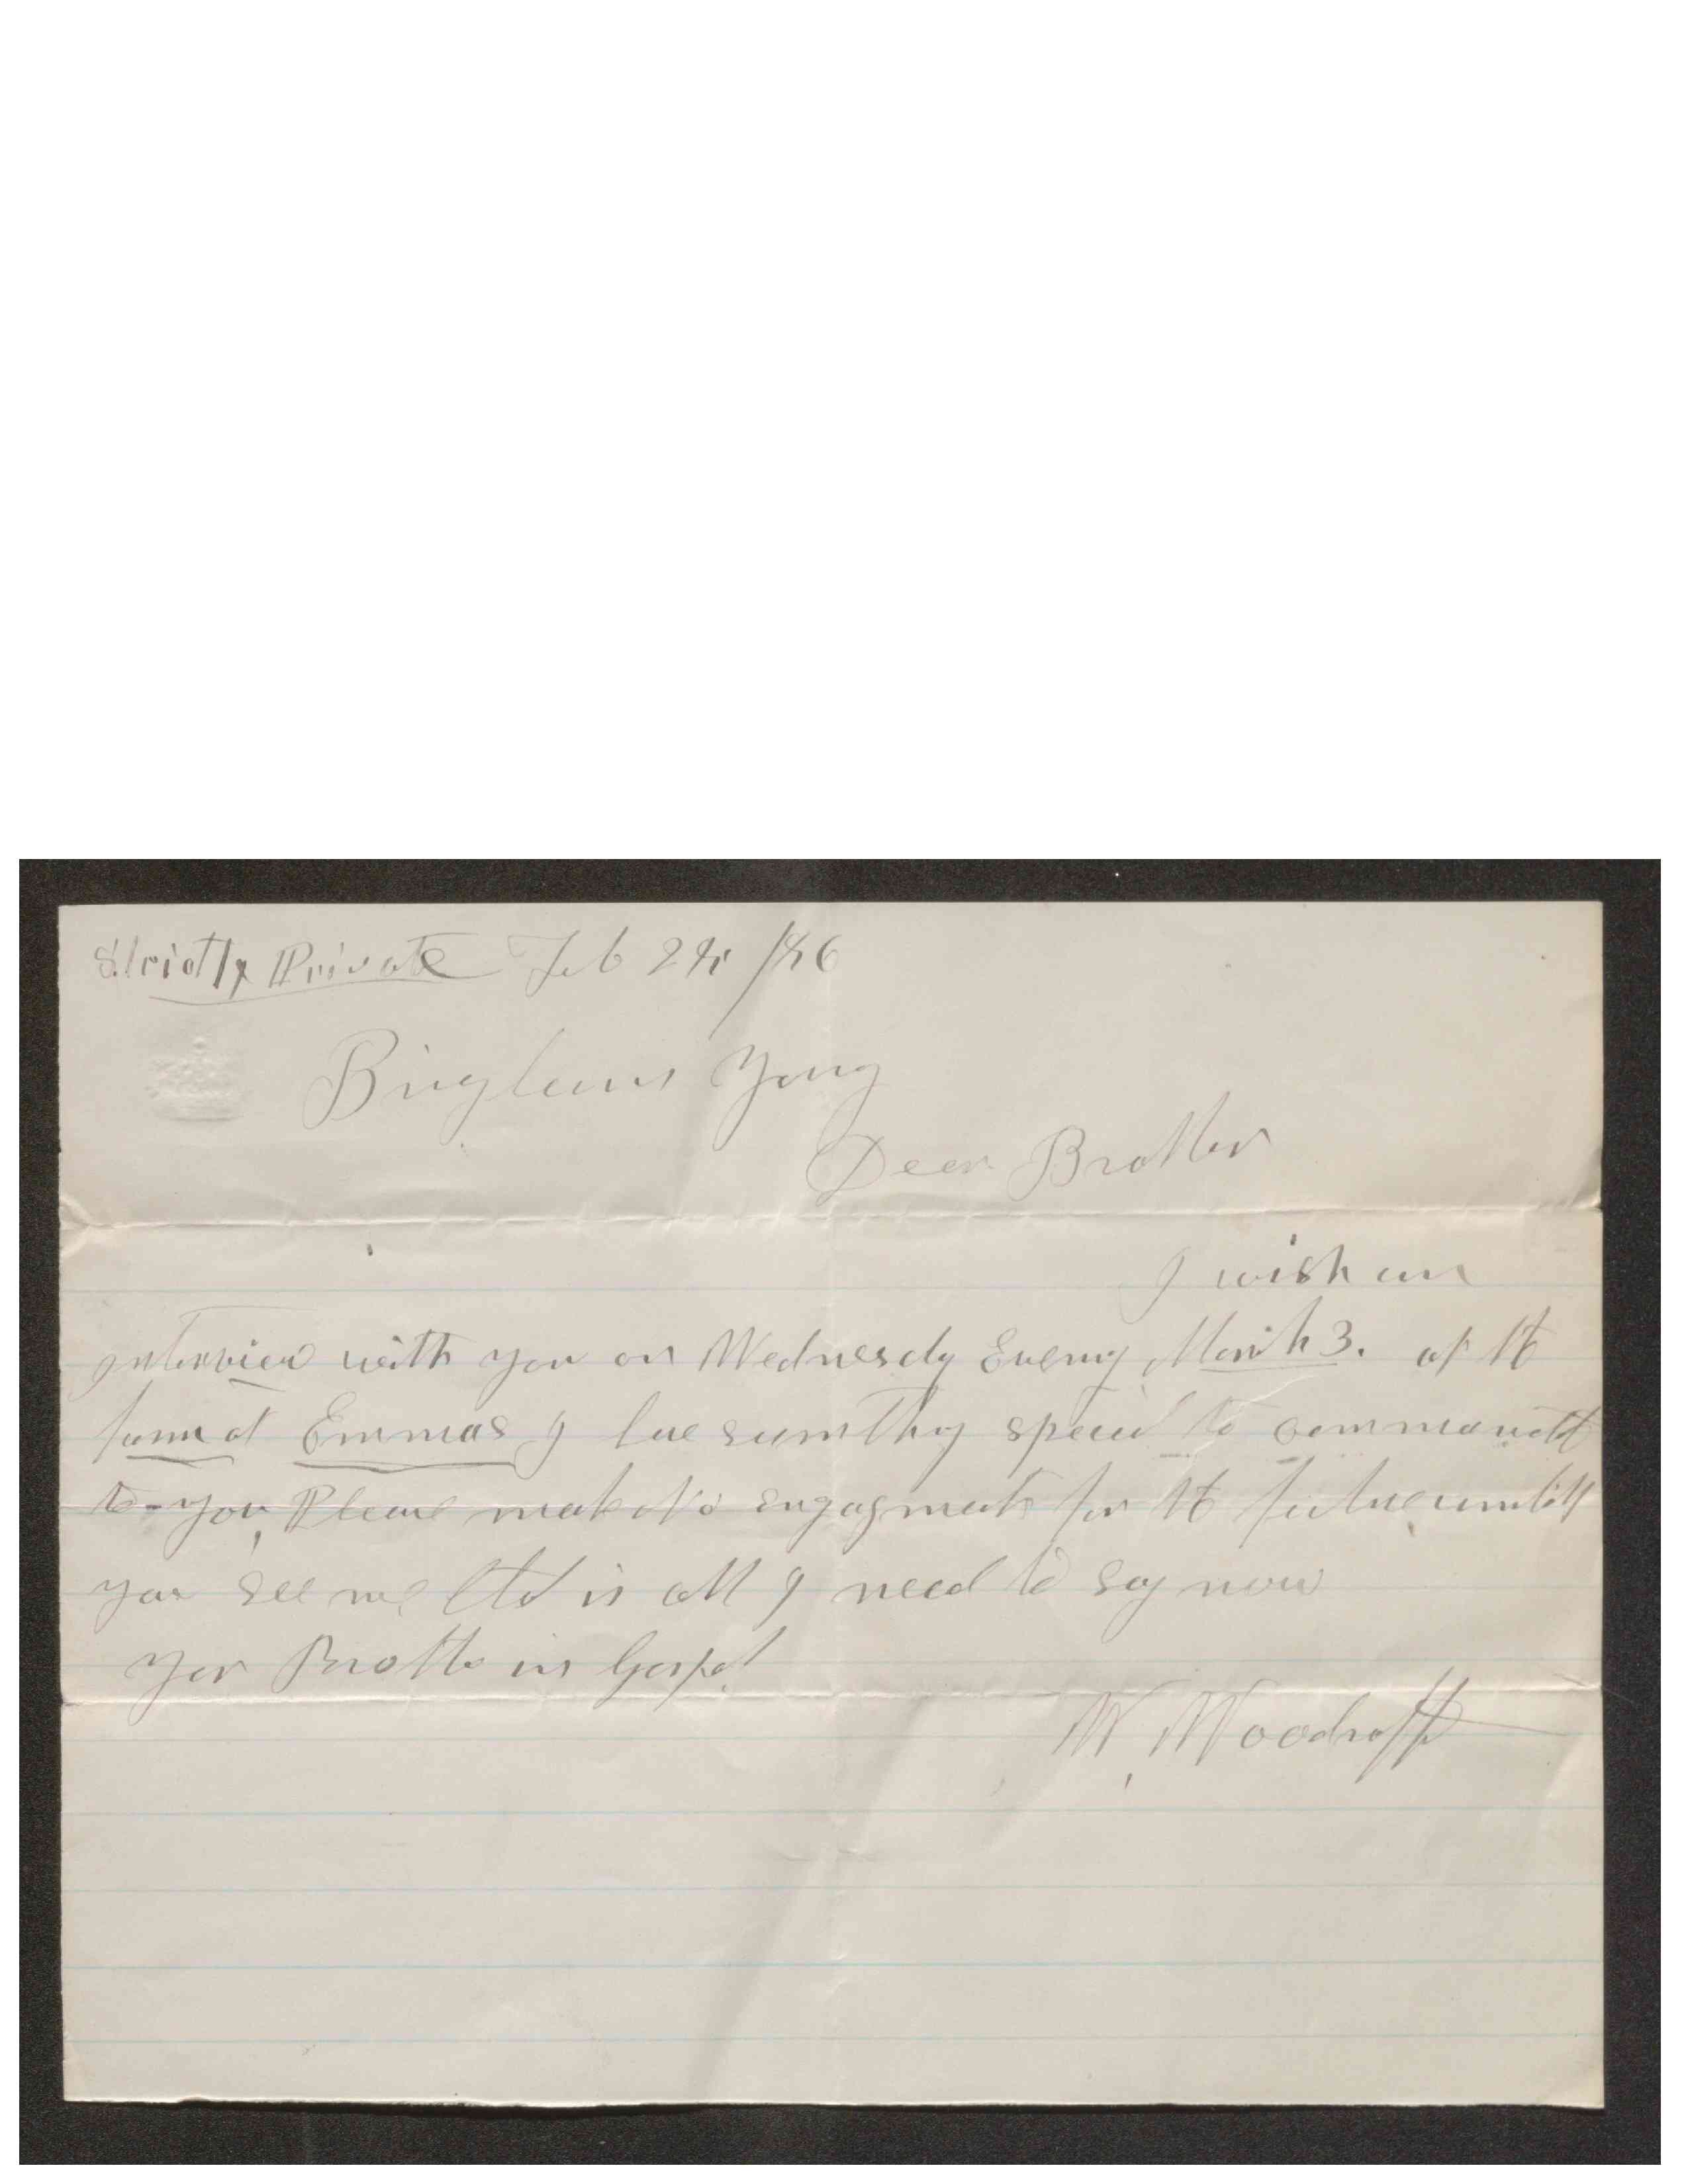 Strictly Private Feb 28 /86
Brigham Young
Dear Brother
I wish an
interview with you on Wednesdy Evenig March 3. at the
farm at Emmas I have sumthig special to communicate
to you, Please make No engagments for the future untill
you see me that is all I need to say now
Your Brother in Gospel
W. Woodruff